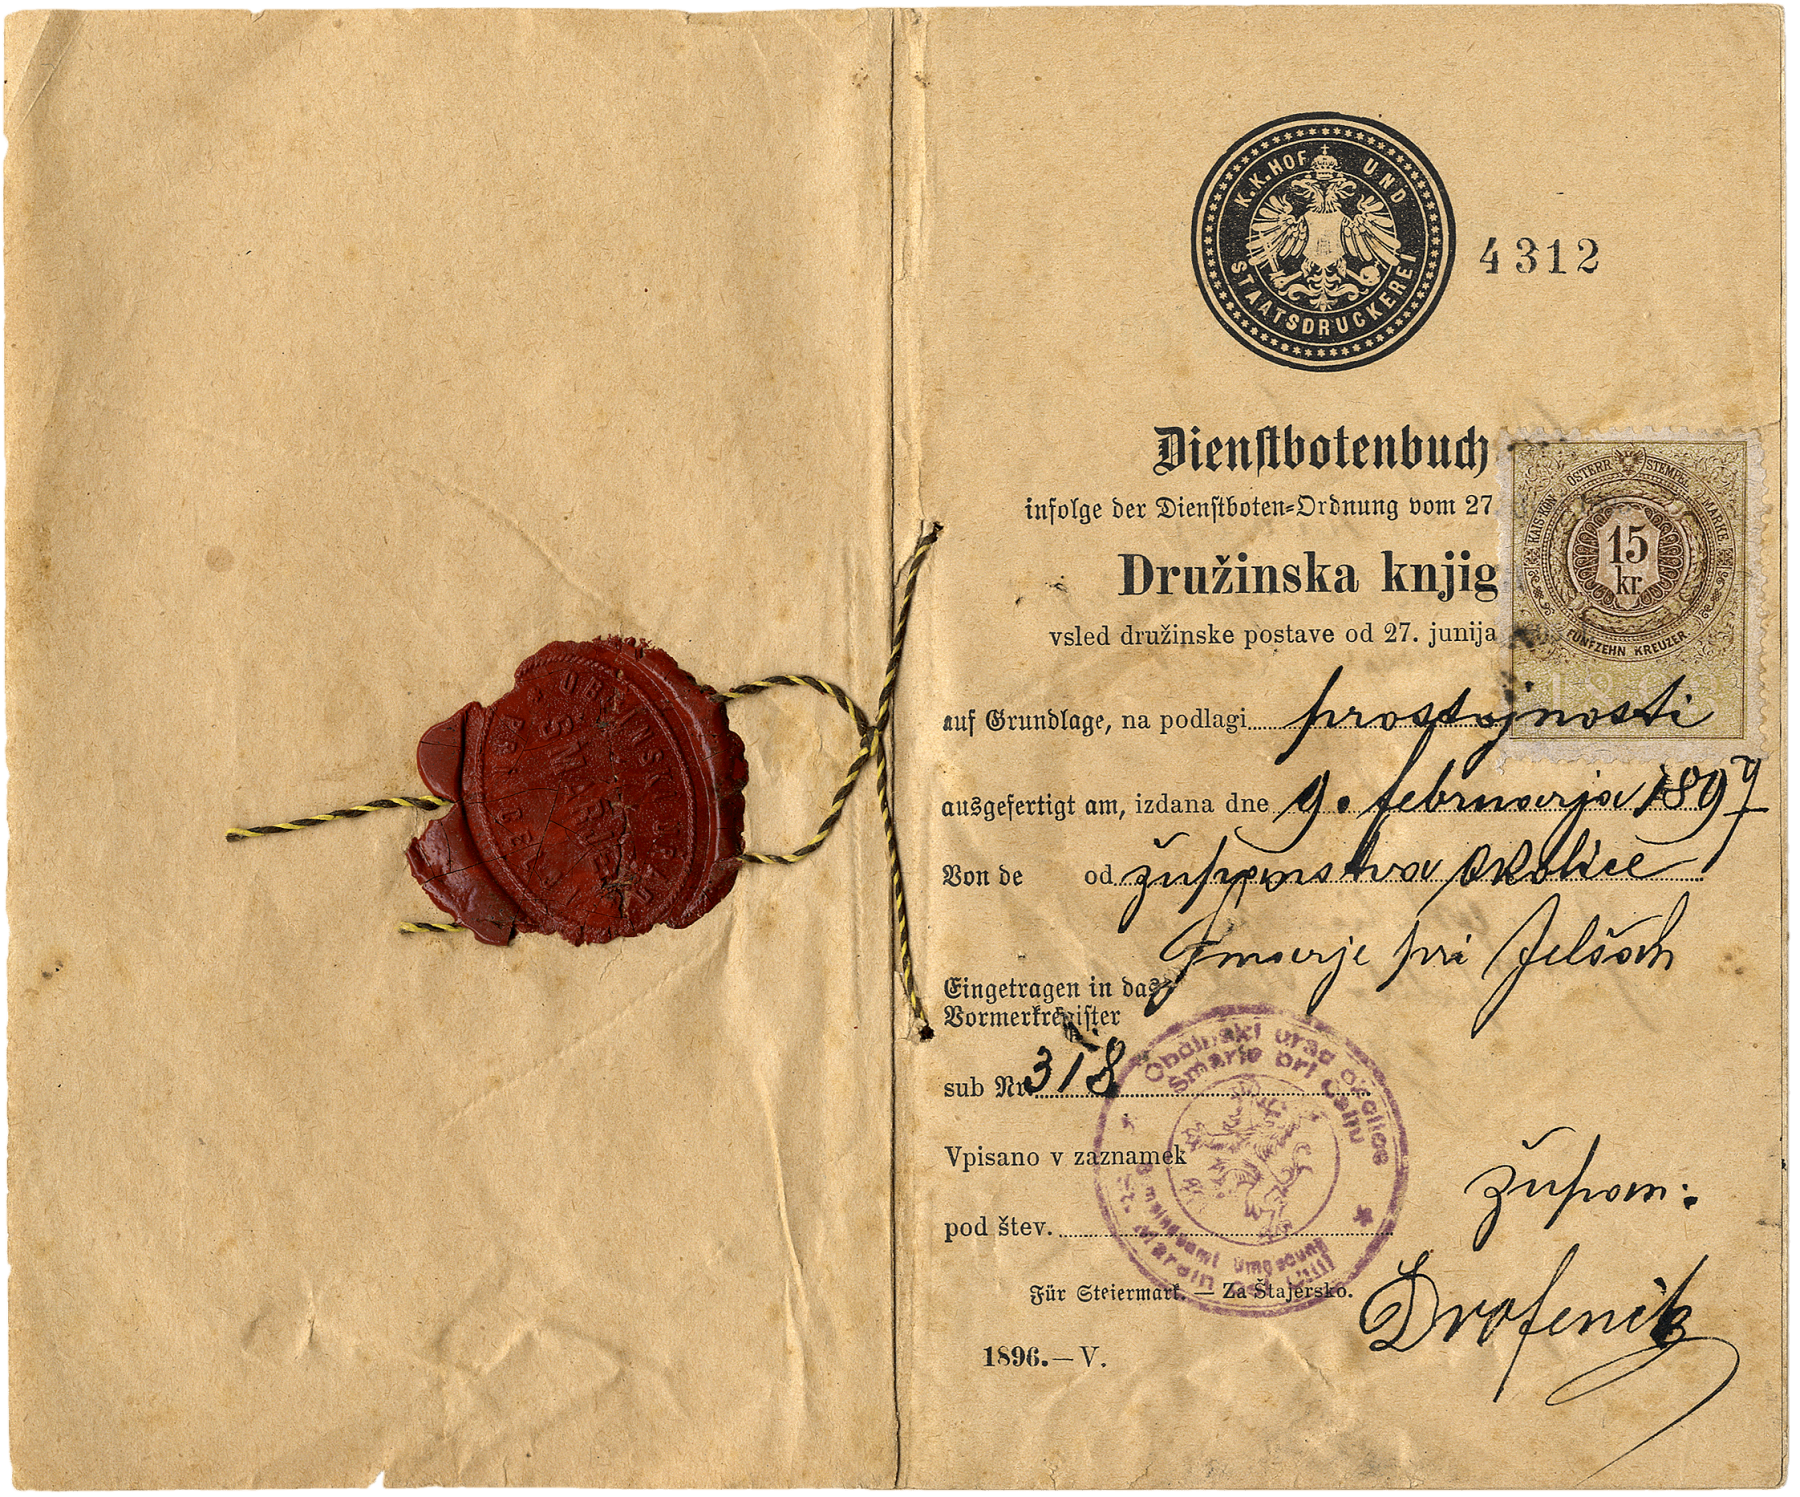 OBČINSKI URAD
ŠMARJE
K.K. HOF UND
STAATSDRUCKEREI
4312
Dienstbotenbuch
infolge der Dienstboten-Ordnung vom 27
Družinska knjig
vsled družinske postave od 27. junija
KAIS. KÖN. ÖSTERR. STEMPEL MARKE
15
kr.
FÜNFZEHN KREUZER
auf Grundlage, na podlagi prostojnosti
ausgefertigt am, izdana dne 9. februarja 1897
Von de od županstva okolice
Šmarje pri Jelšah
Eingetragen in das
Vormerkregister
sub Nr. 318
Občinski urad okolice
Šmarje pri Celju
Vpisano v zaznamek
pod štev.
Gemeindeamt Umgebung
St. Marein bei Cilli
župan:
Für Steiermark. — Za Štajersko.
Drofenik
1896. — V.